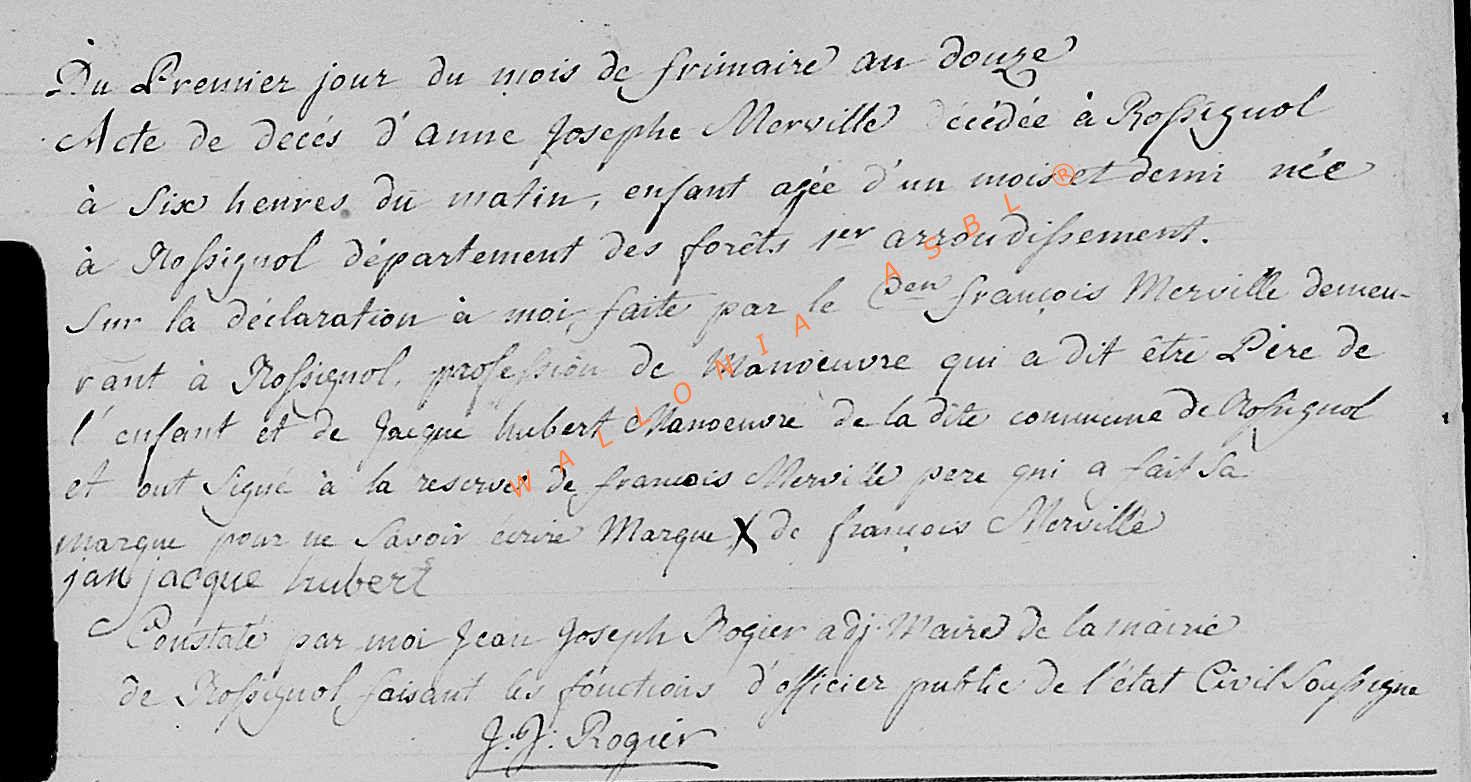 Du Premier jour du mois de frimaire an douze
Acte de decés d'anne Josephe Merville décédée à Rossignol
à Six heures du matin, enfant agée d'un mois et demi née
à Rossignol département des forêts 1er arrondissement.
Sur la déclaration à moi, faite par le Cen françois Merville demeu-
rant à Rossignol, profession de Manoeuvre qui a dit être Père de
l'enfant et de Jacque hubert Manoeuvre de la dite commune de Rossignol
et ont Signé à la reserve de françois Merville pere qui a fait Sa
marque pour ne Savoir écrire Marque X de françois Merville
jan jacque hubert
Constaté par moi Jean Joseph Rogier adj. Maire de la mairie
de Rossignol faisant les fonctions d'officier public de l'état Civil Soussigne
J. J. Rogier
WALLONIA ASBL ®